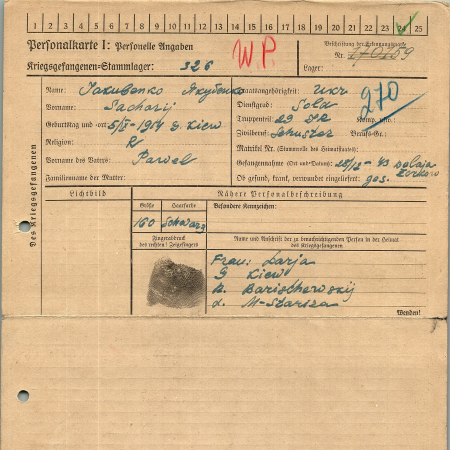 1 2 3 4 5 6 7 8 9 10 11 12 13 14 15 16 17 18 19 20 21 22 23 24 25
Personalkarte I: Personelle Angaben
Kriegsgefangenen-Stammlager: 326
W.P.
Beschriftung der Erkennungsmarke
Nr.
Lager:
Des Kriegsgefangenen
Name: Jakubenko
Vorname: Sacharij
Geburtstag und -ort: 5/II-1914 g. Kiew
Religion: R
Vorname des Vaters: Pawel
Familienname der Mutter:
Staatsangehörigkeit: Ukr
Dienstgrad: Sold
Truppenteil: 29 Komp. usw.:
Zivilberuf: Schuster Berufs-Gr.:
270
Matrikel Nr. (Stammrolle des Heimatstaates):
Gefangennahme (Ort und Datum): 43
Ob gesund, krank, verwundet eingeliefert: ges.
Lichtbild
Nähere Personalbeschreibung
Größe Haarfarbe Besondere Kennzeichen:
160 Schwarz
Fingerabdruck
des rechten! Zeigefingers
Name und Anschrift der zu benachrichtigenden Person in der Heimat
des Kriegsgefangenen
Frau: Darja
G Kiew
R. Barischewskij
d. M-Starza
Wenden!